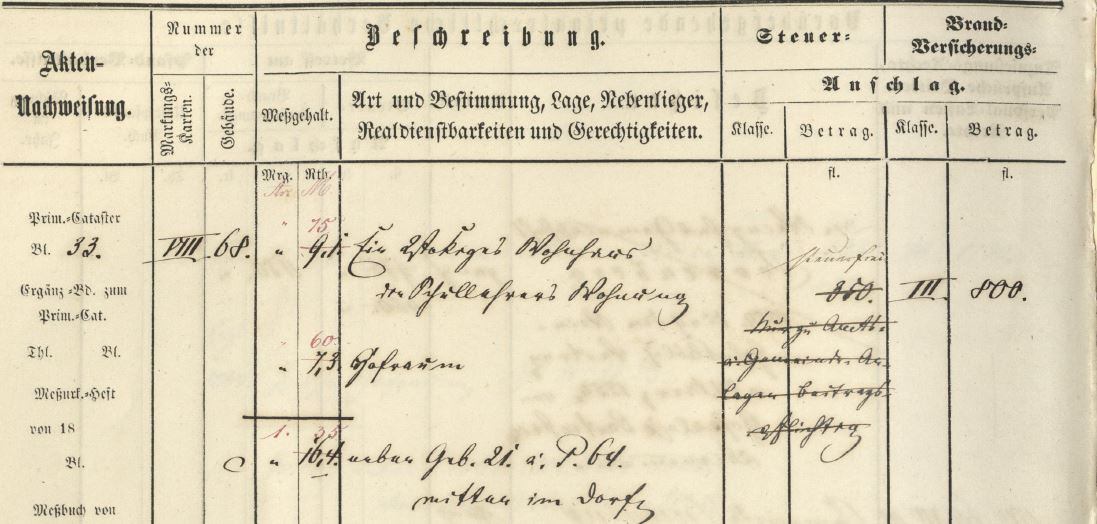 Akten-
Nachweisung.
Nummer
der
Markungs-
Karten.
Gebäude.
Beschreibung.
Meßgehalt.
Art und Bestimmung, Lage, Nebenlieger,
Realdienstbarkeiten und Gerechtigkeiten.
Steuer-
Brand-
Versicherungs-
Anschlag.
Klasse. Betrag. Klasse. Betrag.
Mrg. Rth. fl. fl.
Ar. M.
Prim.-Cataster
" 75
Bl. 33. VIII 68. " 9,1. Ein 2stokiges Wohnhaus
steuerfrei
der Schullehrers Wohnung 850. III. 800.
Ergänz.-Bd. zum
Prim.-Cat.
nur zu Amts-
" 60
Thl. Bl. " 7,3 Hofraum
u. Gemeinde An-
Meßurk.-Heft
lagen beitrags-
von 18
pflichtig
1. 35
Bl. C " 16,4. neben Geb. 21. u. P. 64.
mitten im Dorf
Meßbuch von